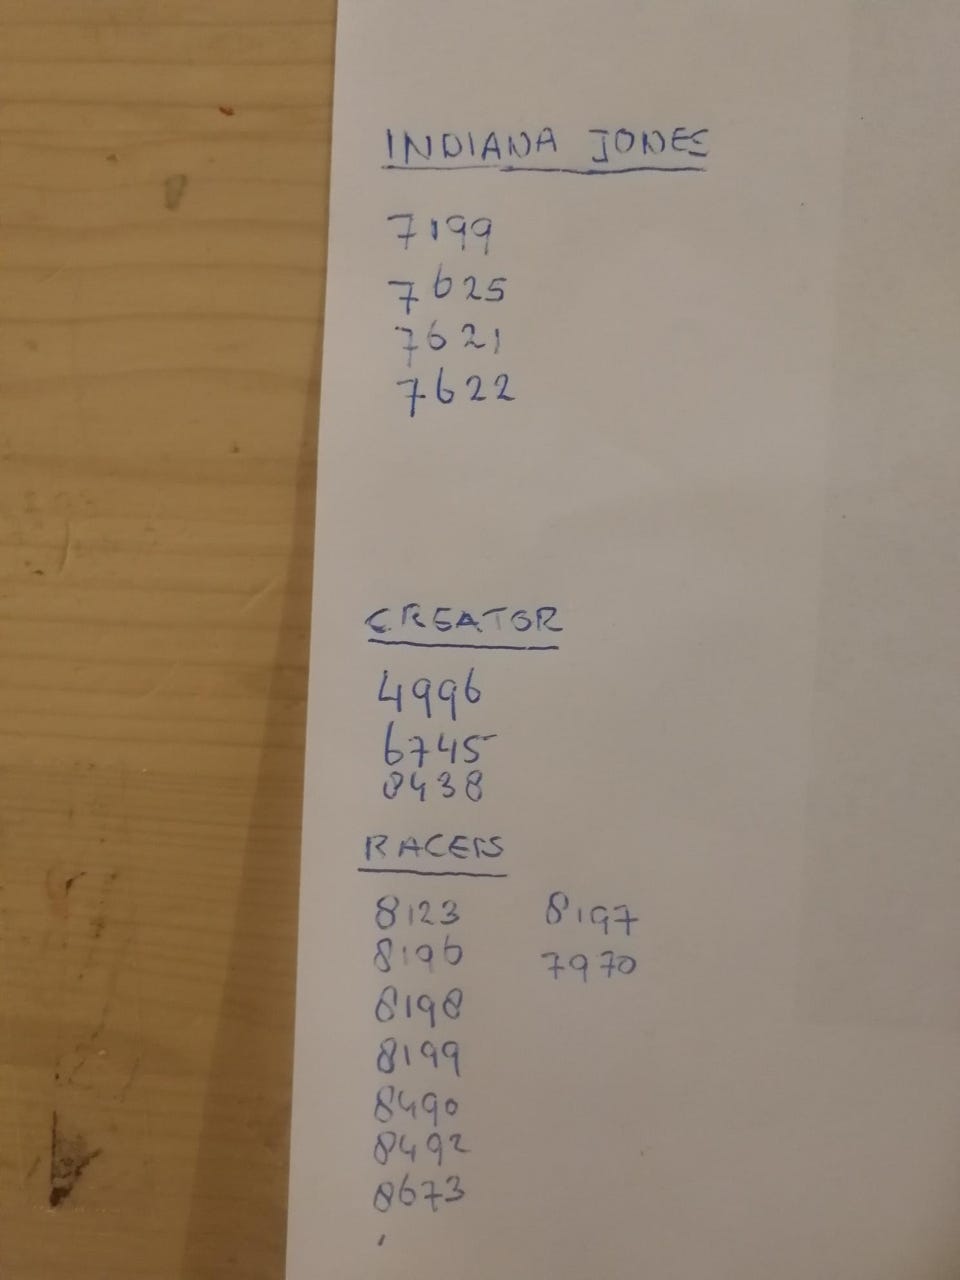 INDIANA JONES
7199
7625
7621
7622
CREATOR
4996
6745
8438
RACERS
8123 8197
8196 7970
8198
8199
8490
8492
8673